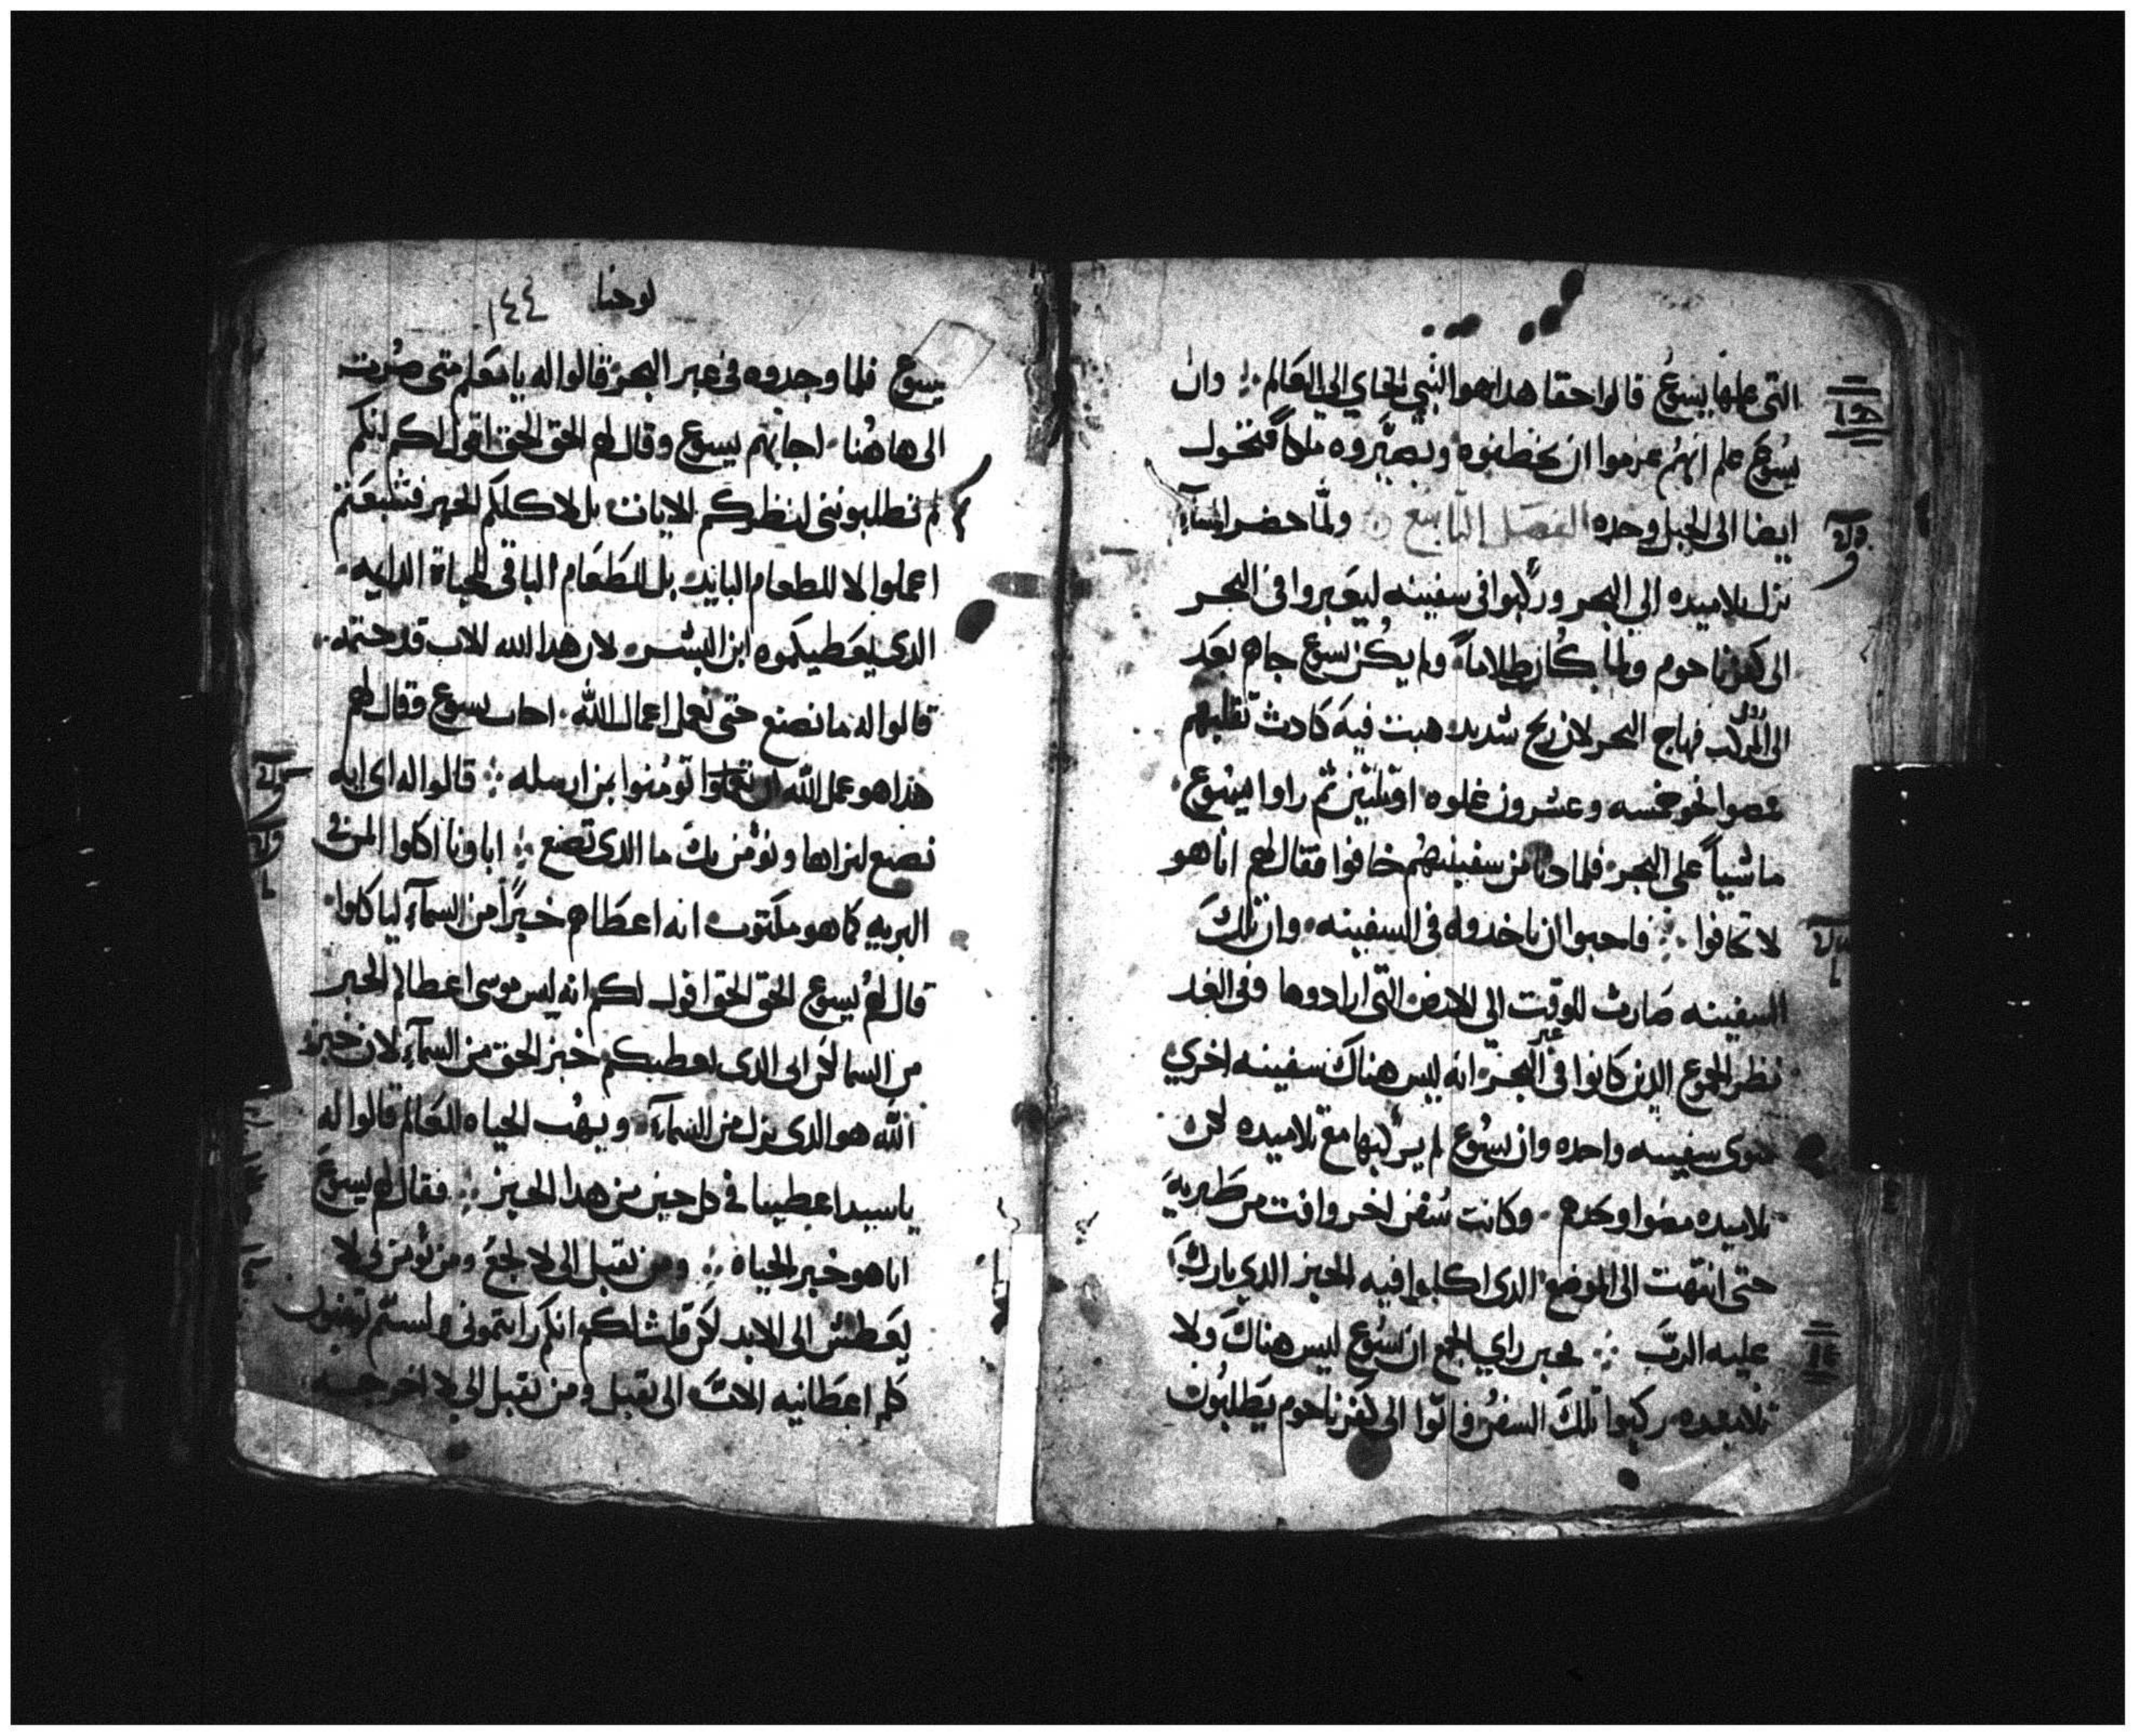 التى عملها يسوع قالوا حقا هدا هو النبي الجاي الي العالم وان
يسوع علم انهم عزموا ان يخطفوه ويصيروه ملكاً فتحول
ايضا الى الجبل وحده الفصل السابع ولمّا حضر المسآء
نزل تلاميده الي البحر وركبوا فى سفينه ليعبروا فى البحر
الى كفرناحوم ولما كان ظلاماً ولم يكن يسوع جاهم بعد
الى المركب فهاج البحر لان ريح شديد هبت فيه كادت تقلبهم
فمضوا نحو خمسه وعشرون غلوه او ثلثين ثم راوا يسوع
ماشياً على البحر فلما دنا من سفينتهم خافوا فقال لهم انا هو
لا تخافوا فاحبوا ان ياخدوه فى السفينه وان تلك
السفينه صارت للوقت الي الارض التى ارادوها وفى الغد
نظر الجموع الدين كانوا فى عبر البحر انه ليس هناك سفينه اخري
سوى سفينه واحده وان يسوع لم يركبها مع تلاميده لكن
تلاميده مضوا وحدهم وكانت سفن اخر وافت من طبريه
حتى انتهت الى الموضع الدى اكلوا فيه الخبز الدي بارك
عليه الربّ فحين راي الجمع ان يسوع ليس هناك ولا
تلاميده ركبوا تلك السفن واتوا الى كفرناحوم يطلبون
يوحنا ١٤٤
يسوع فلما وجدوه فى عبر البحر قالوا له يا معلم متى صرت
الى هاهنا اجابهم يسوع وقال لهم الحق الحق اقول لكم انكم
لم تطلبونى لنظركم الايات بل لاكلكم الخبز فشبعتم
اعملوا لا للطعام البايد بل للطعام الباقى للحياة الدايمه
الدى يعطيكموه ابن البشر لان هدا الله الاب قد ختمه
قالوا له ما نصنع حتى نعمل اعمال الله اجاب يسوع فقال لهم
هذا هو عمل الله ان تؤمنوا بمن ارسله قالوا له اى ايه
تصنع لنراها ونؤمن بك ما الدى تصنع اباونا اكلوا المن فى
البريه كما هو مكتوب انه اعطاهم خبزاً من السمآء لياكلوا
قال لهم يسوع الحق الحق اقول لكم انه ليس موسى اعطاكم الخبز
من السما لكن ابى الدى يعطيكم خبز الحق من السمآء لان خبز
الله هو الدى نزل من السمآء ويهب الحياه للعالم قالوا له
يا سيد اعطينا فى كل حين من هدا الخبز فقال لهم يسوع
انا هو خبز الحياة ومن يقبل الى لا يجع ومن يؤمن بى لا
يعطش الى الابد لكن قلت لكم انكم رايتمونى ولستم تؤمنون
كلما اعطانيه الاب الى يقبل ومن يقبل الي لا اخرجه